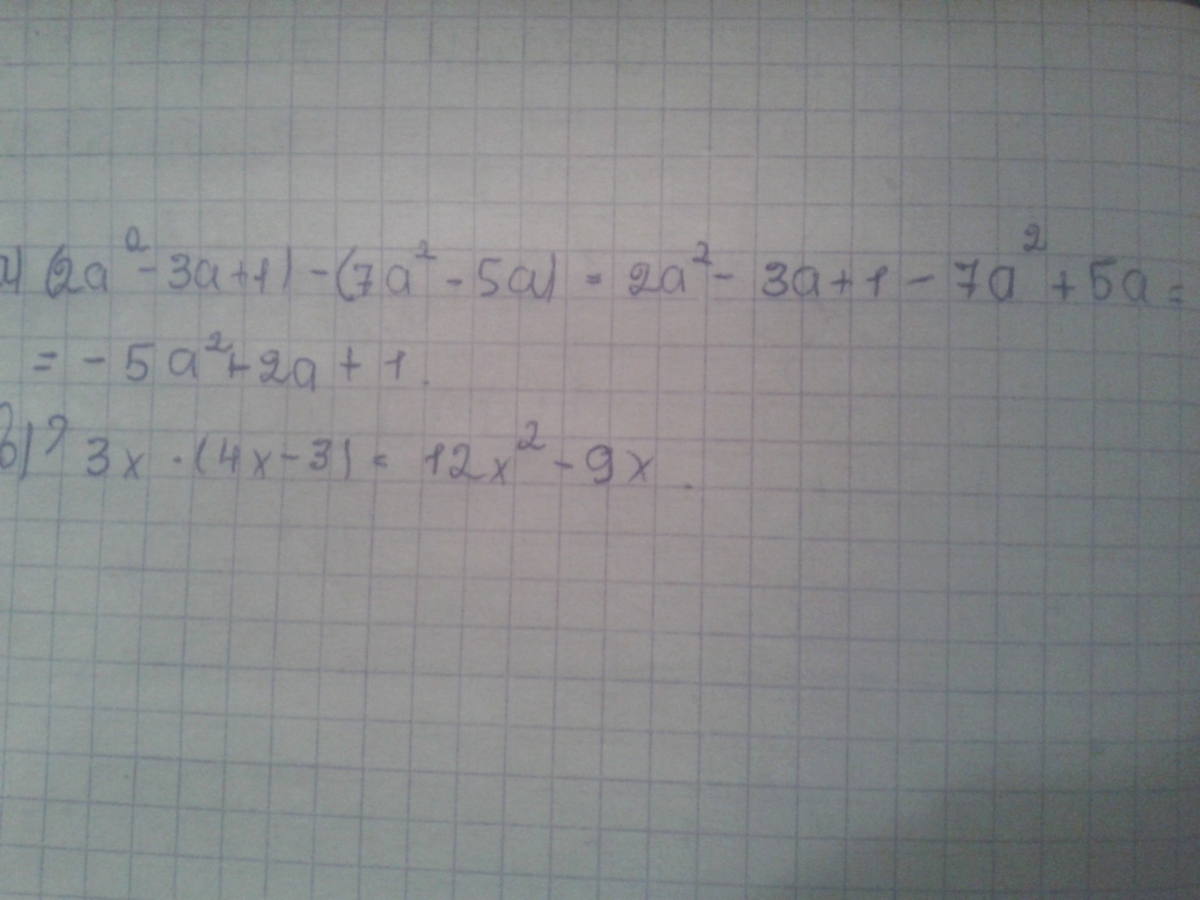 а) (2a² - 3a + 1) - (7a² - 5a) = 2a² - 3a + 1 - 7a² + 5a =
= - 5a² + 2a + 1.
б) 3x · (4x - 3) = 12x² - 9x.